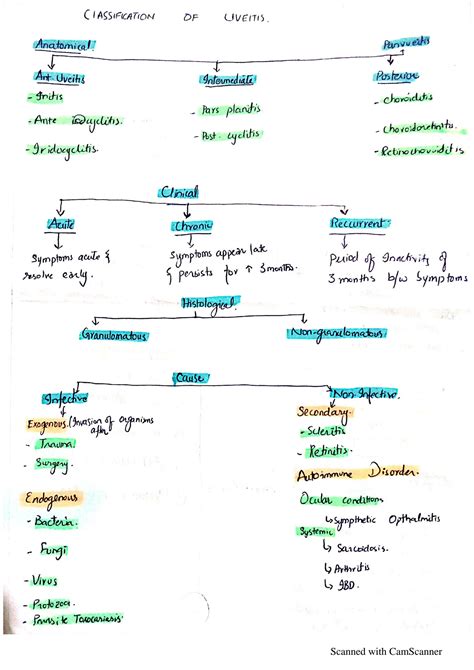 CLASSIFICATION OF UVEITIS.
Anatomical. Panuveitis
Ant. Uveitis Intermediate Posterior
- Iritis - Pars planitis - Choroiditis
- Ante cyclitis. - Post. cyclitis - Chorioretinitis
- Iridocyclitis. - Retinochoroiditis
Clinical
Acute Chronic Recurrent.
Symptoms acute & Symptoms appear late Period of Inactivity of
resolve early. & persists for ↑ 3 months. 3 months b/w Symptoms
Histological
Granulomatous Non-granulomatous.
Cause
Infective Non-Infective.
Exogenous. (Invasion of organisms after Secondary.
- Trauma. - Scleritis
- Surgery. - Retinitis
Autoimmune Disorder.
Endogenous Ocular conditions
- Bacteria. ↳ Sympthetic Opthalmitis
Systemic
- Fungi ↳ Sarcoidosis.
↳ Arthritis
- Virus ↳ IBD.
- Protozoa
- Parasite Toxocariasis
Scanned with CamScanner